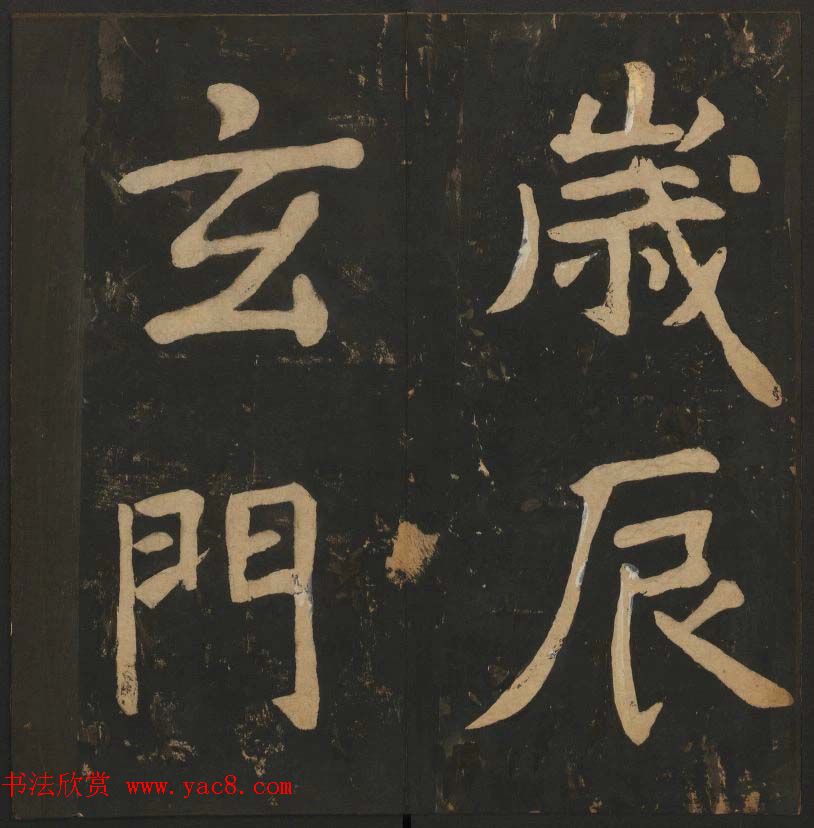 歲辰
玄門
书法欣赏 www.yac8.com